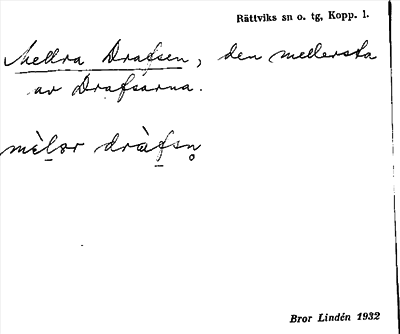 Rättviks sn o. tg, Kopp. l.
Mellra Drafsen, den mellersta
av Drafsarna.
mὲlər dràfsn̥
Bror Lindén 1932